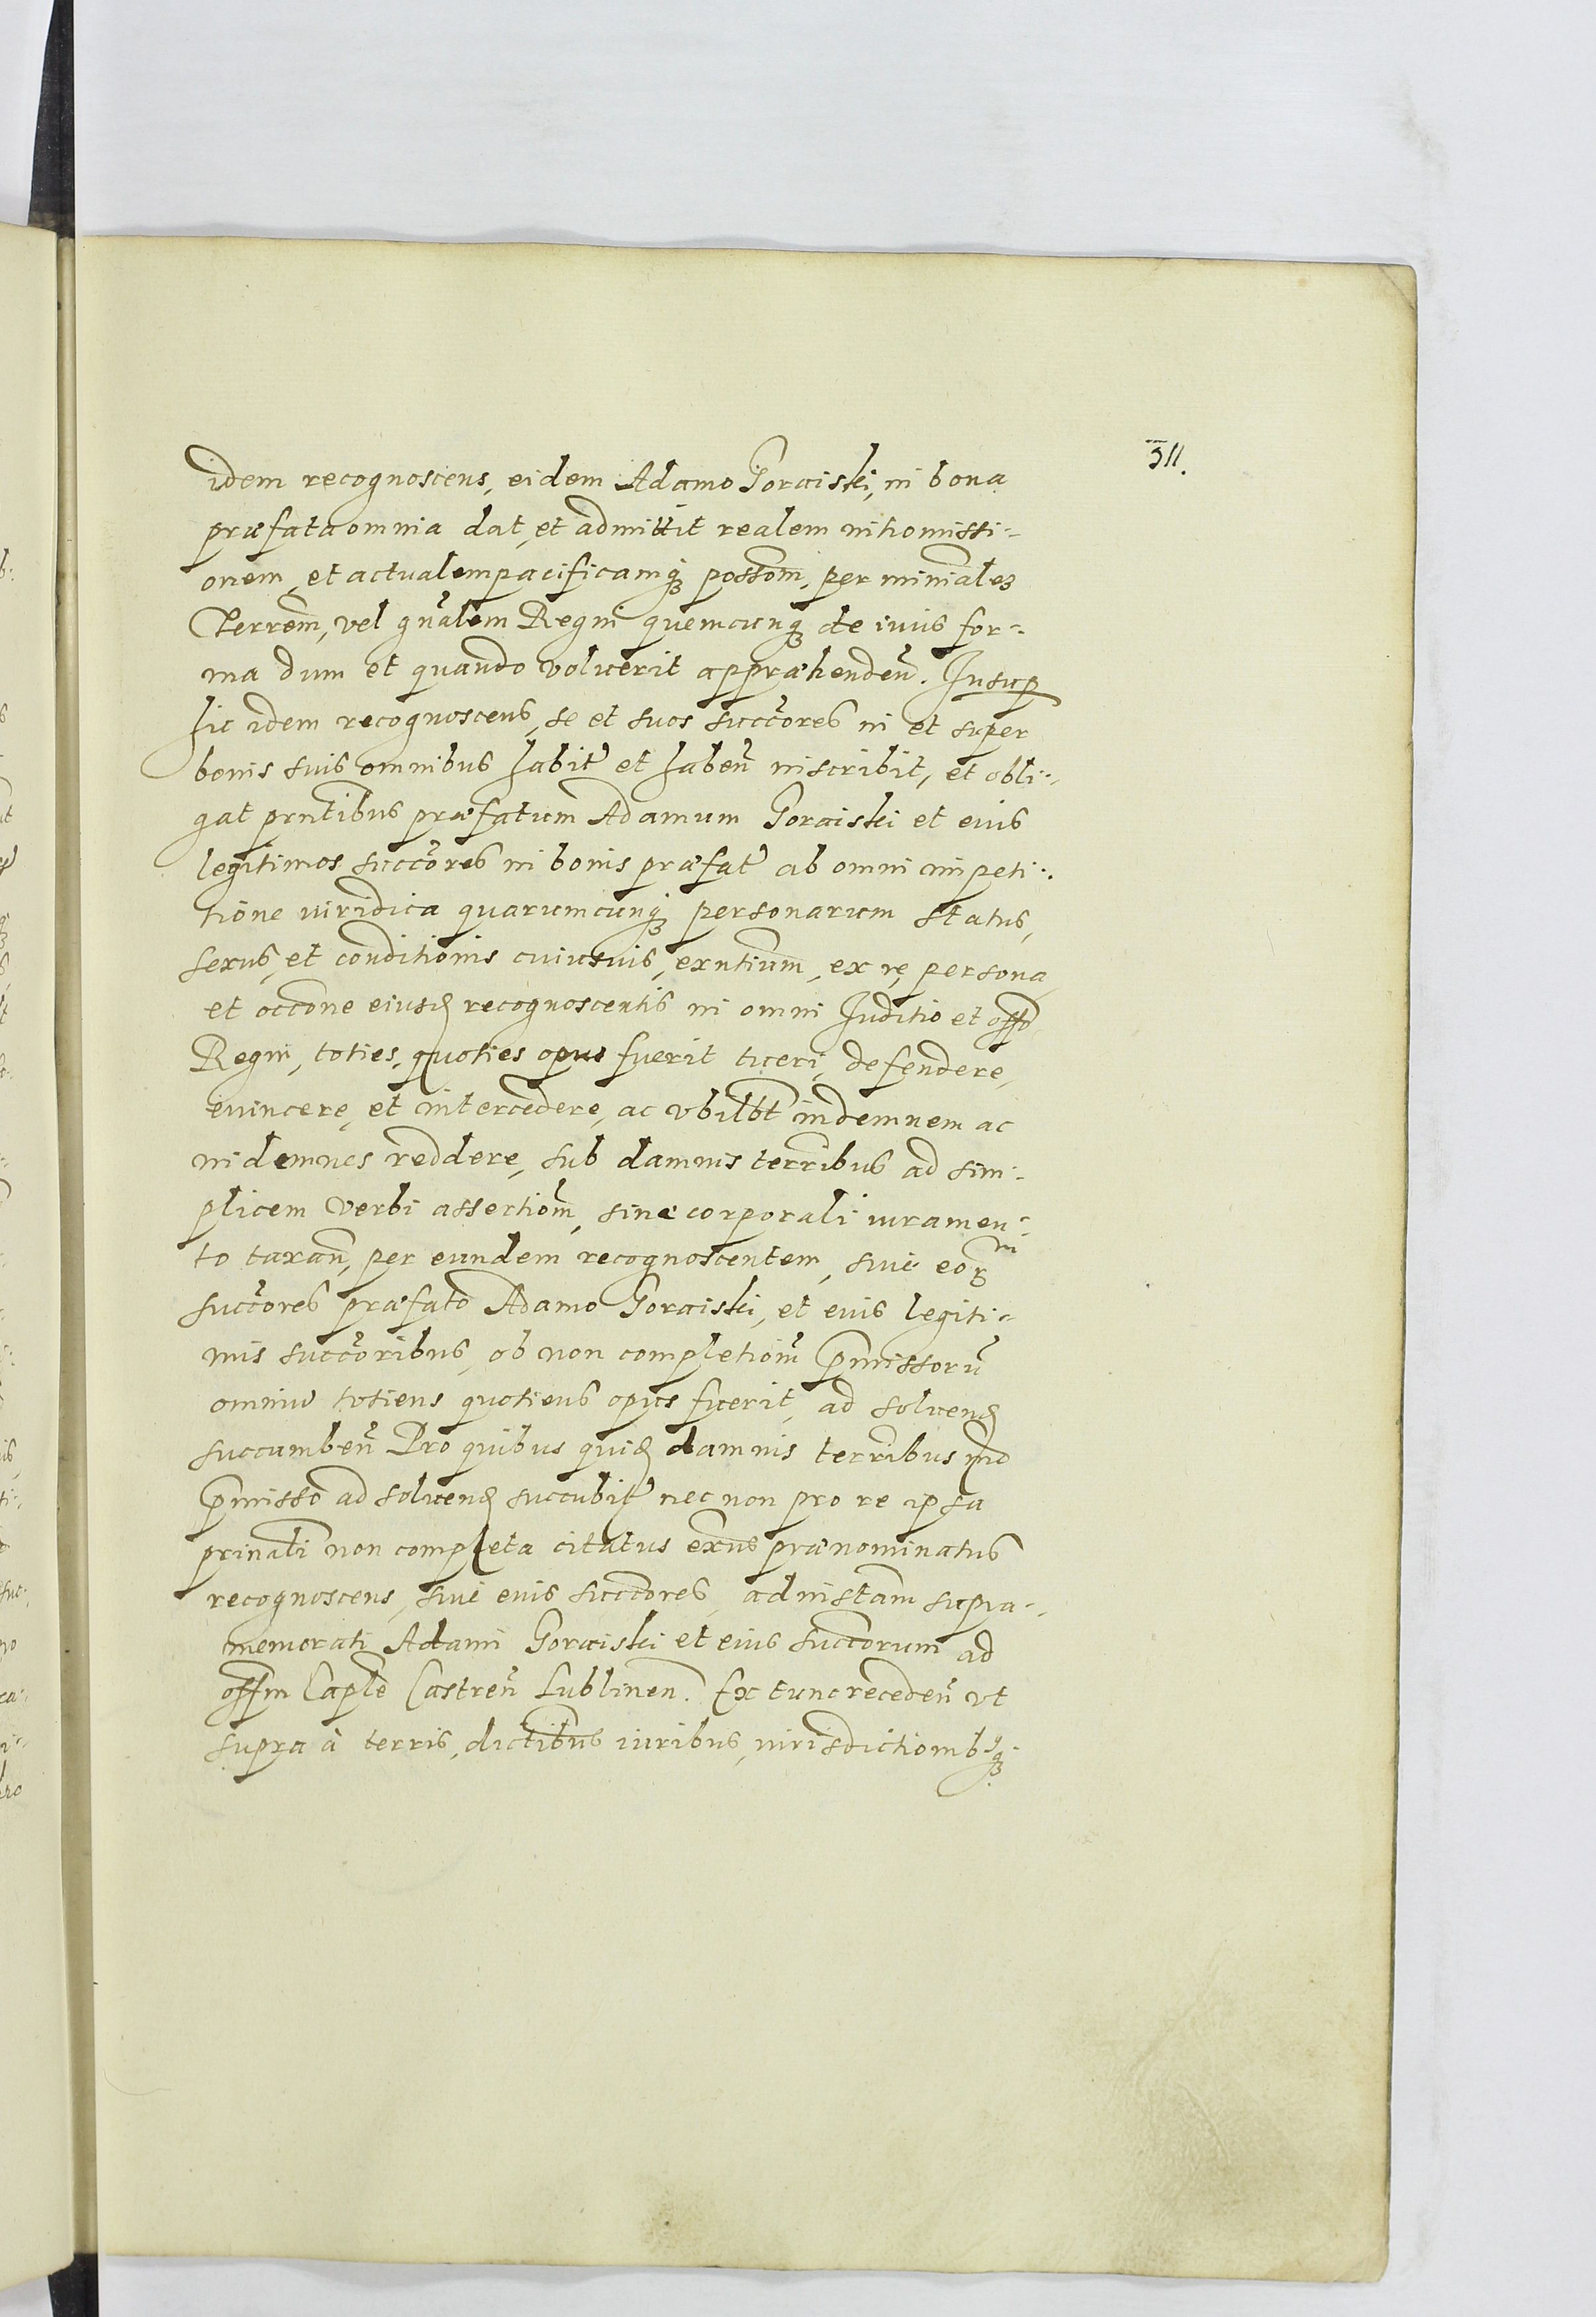 311.
idem recognoscens, eidem Adamo Goraiski, in bona
præfata omnia dat, et admittit realem intromissi-
onem, et actualem pacificamq; possom̄, per minialez
Terrem̄, vel gn̄alem Regni quemcunq; de iuris for-
ma dum et quando voluerit appræhenden̄. Insup
hic idem recognoscens, se et suos succc̄ores in et super
bonis suis omnibus habit̄ et haben̄ inscribit, et obli-
gat prn̄tibus præfatum Adamum Goraiski et eius
legitimos succc̄ores in bonis præfat̄ ab omni impeti-
tione iuridica quarumcunq; personarum status,
sexus, et conditionis cuiusvis, exn̄tium, ex re, persona,
et occōne eiusd recognoscentis in omni Juditio et offō
Regni, toties, quoties opus fuerit tueri, defendere,
euincere, et intercedere, ac vbilibt̄ indemnem ac
indemnes reddere, sub damnis terrībus ad sim-
plicem verbi assertiom̄, sine corporali iuramen-
to taxan̄, per eundem recognoscentem, siue eorm
succc̄ores præfato Adamo Goraiski, et eius legiti-
mis succc̄oribus, ob non completiom̄ pmissorū
omniū totiens quotiens opus fuerit, ad soluend
succumben̄ Pro quibus quid damnis terrībus mō
pmisso ad soluend succubit̄ nec non pro re ipsa
prinālī non completa citatus exn̄s prænominatus
recognoscens, siue eius succc̄ores, ad instam̄ supra-
memorati Adami Goraiski et eius succc̄orum ad
offm Caplē Castren̄ Lublinen̄. Ex tunc receden̄ vt
supra à terris, dictībus iuribus, iurisdictionibq;